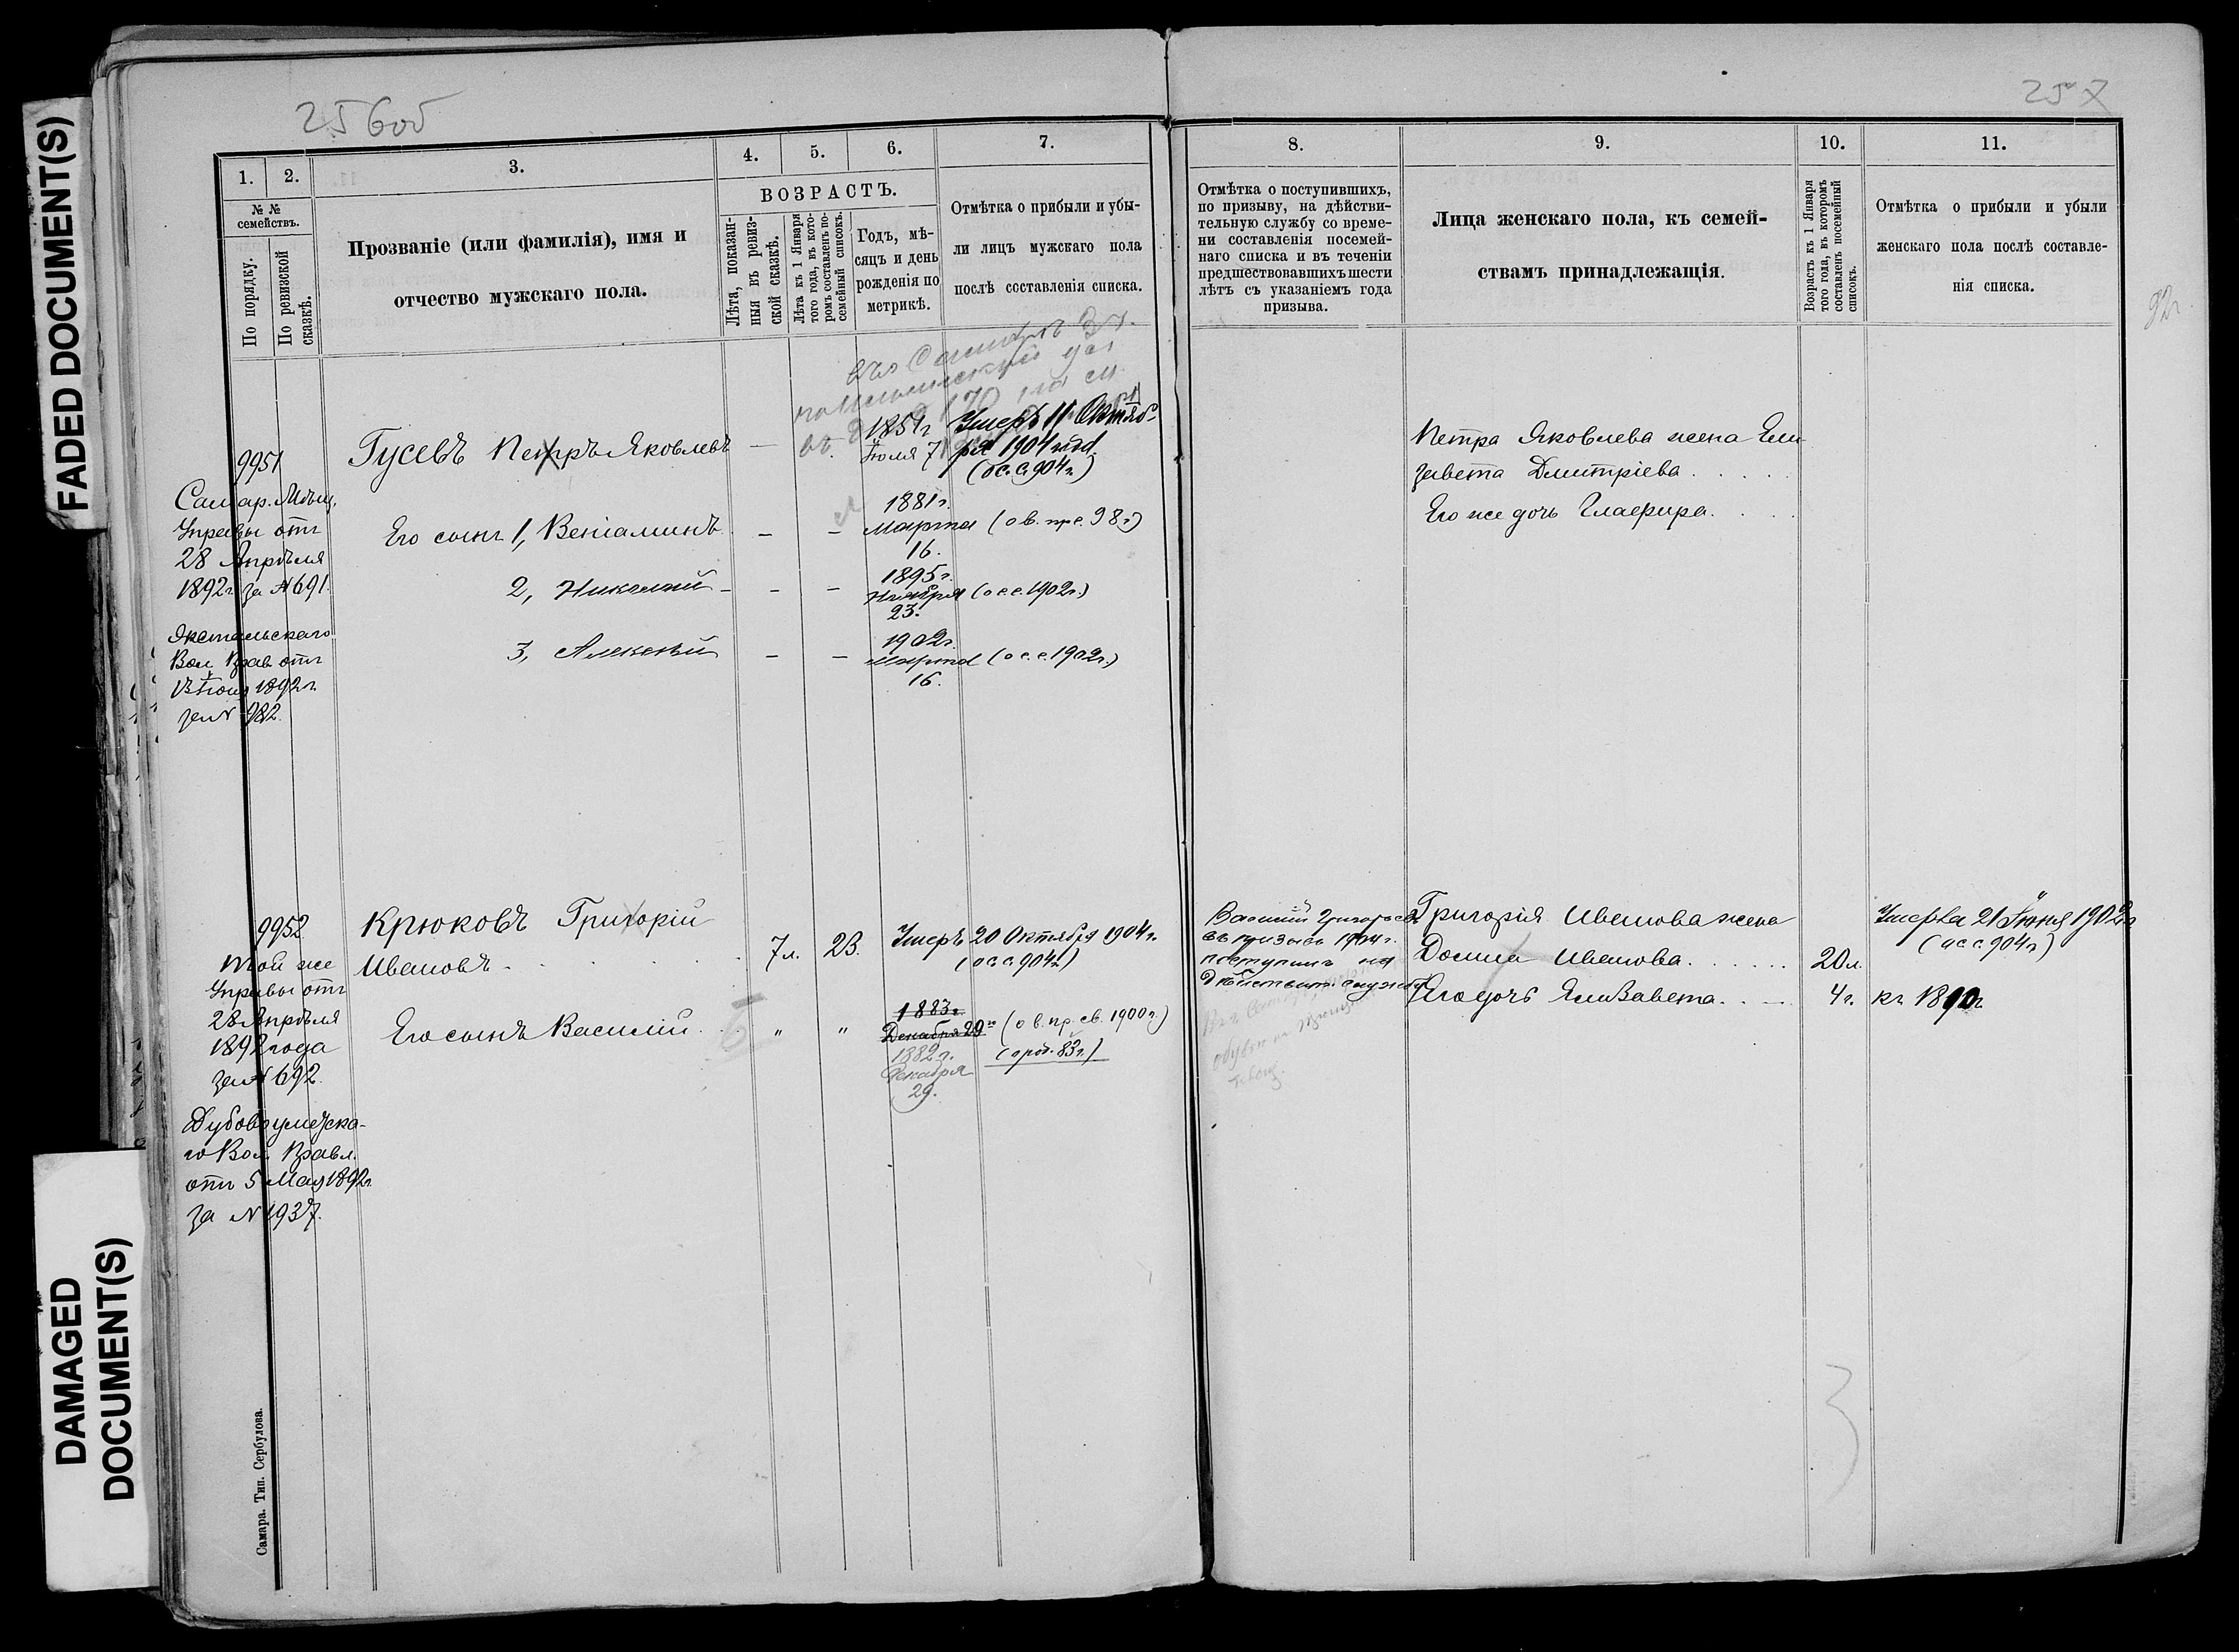 FADED DOCUMENT(S)
DAMAGED
DOCUMENT(S)
256об
1.
2.
3.
4.
5.
6.
7.
№ №
семействъ.
По порядку.
По ревизской
сказкѣ.
Прозваніе (или фамилія), имя и
отчество мужскаго пола.
ВОЗРАСТЪ.
Лѣта, показан-
ныя въ ревиз-
ской сказкѣ.
Лѣта къ 1 Января
того года, въ кото-
ромъ составленъ по-
семейный списокъ.
Годъ, мѣ-
сяцъ и день
рожденія по
метрикѣ.
Отмѣтка о прибыли и убы-
ли лицъ мужскаго пола
послѣ составленія списка.
9951
Самар. Мѣщ.
Управы отъ
28 Апрѣля
1892 г. за № 691.
Вол. Прав. отъ
1892 г.
за № 982.
Гусевъ Петръ Яковлевъ
1851 г.
Іюля 7
Умеръ 11 Октяб-
ря 1904 года
(ос. с. 904 г.)
Его сынъ 1, Веніаминъ
1881 г.
Марта (о в. пр. с. 98 г.)
16.
2, Николай
1895 г.
Ноября (о с. с. 1902 г.)
23.
3, Алексѣй
1902 г.
Марта (о с. с. 1902 г.)
16.
9952
Той же
Управы отъ
28 Апрѣля
1892 года
за № 692.
Дубовоуметска-
го Вол. Правл.
отъ 5 Мая 1892 г.
за № 1937.
Крюковъ Григорій
Ивановъ
7 л.
23.
Умеръ 20 Октября 1904 г.
(ос. с. 904 г.)
Его сынъ Василій
"
"
1883 г.
Декабря 29 (о в. пр. св. 1900 г.)
1882 г. (о род. 83 г.)
Декабря
29.
Самара. Тип. Сербулова.
257
8.
9.
10.
11.
Отмѣтка о поступившихъ,
по призыву, на дѣйстви-
тельную службу со време-
ни составленія посемей-
наго списка и въ теченіи
предшествовавшихъ шести
лѣтъ съ указаніемъ года
призыва.
Лица женскаго пола, къ семей-
ствамъ принадлежащія.
Возрастъ къ 1 Января
того года, въ которомъ
составленъ посемейный
списокъ.
Отмѣтка о прибыли и убыли
женскаго пола послѣ составле-
нія списка.
92 г.
Петра Яковлева жена Ели-
завета Дмитріева
Его же дочь Глафира
Василій Григорьевъ
въ призывъ 1904 г.
поступилъ на
Дѣйствит. службу
Григорія Иванова жена
Домна Иванова
20 л.
Умерла 21 Іюня 1902 г.
(ос с 904 г)
Его дочь Елизавета
4 г.
къ 1890 г.